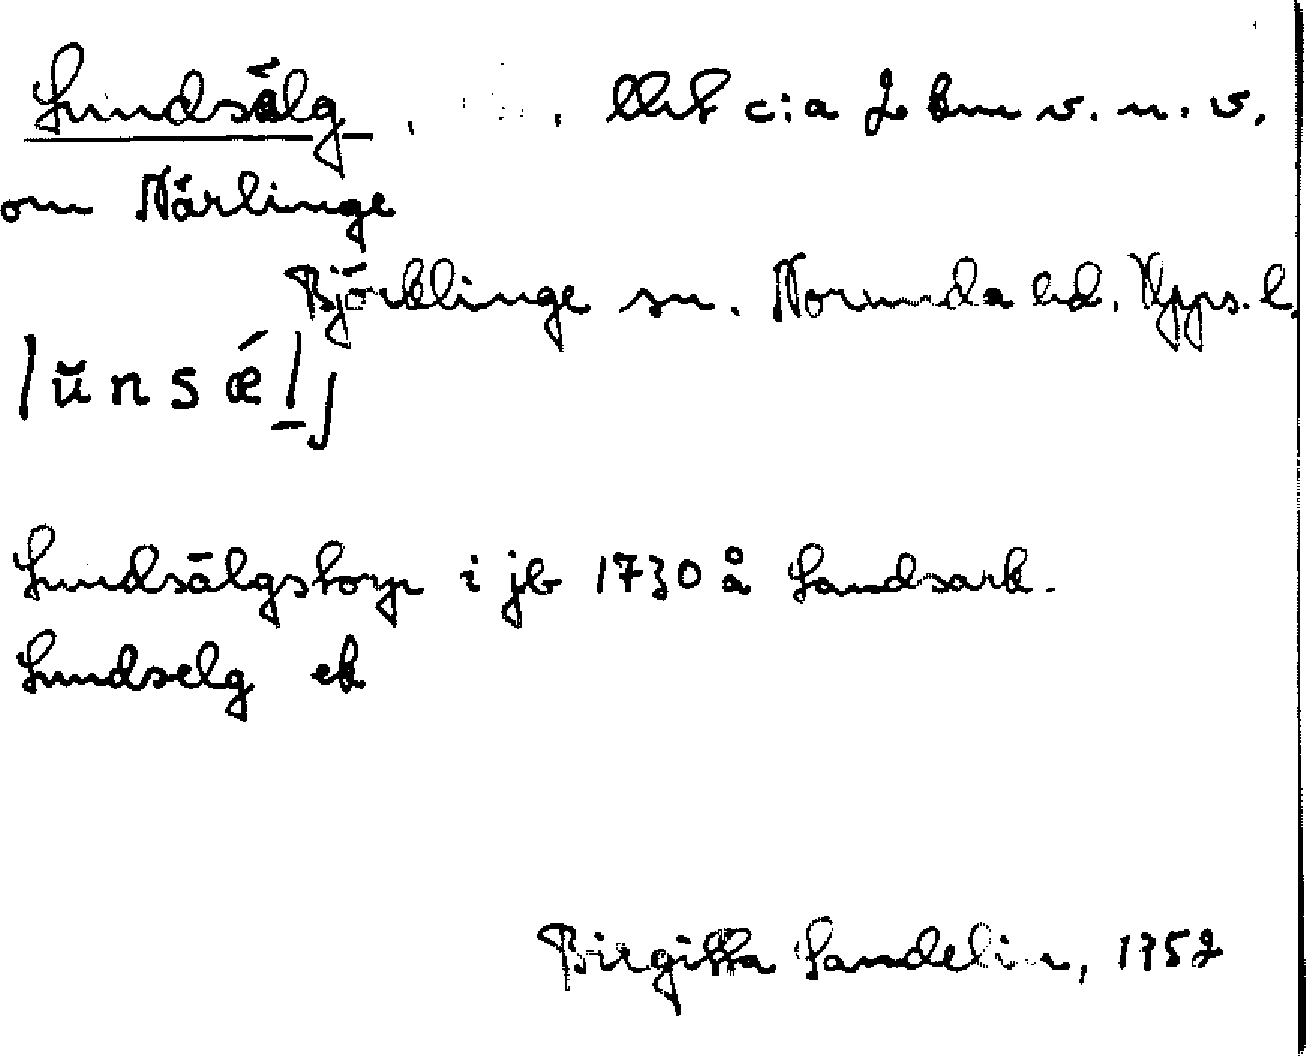 Lundsälg, , Utk c:a 2 km v. n. v.
om Närlinge
Björklinge sn. Norunda hd. Upps. l.
lŭnsǽl̲j
Lundsälgstorp i jb 1730 å Landsark.
Lundselg ek
Birgitta Sandelin, 1952